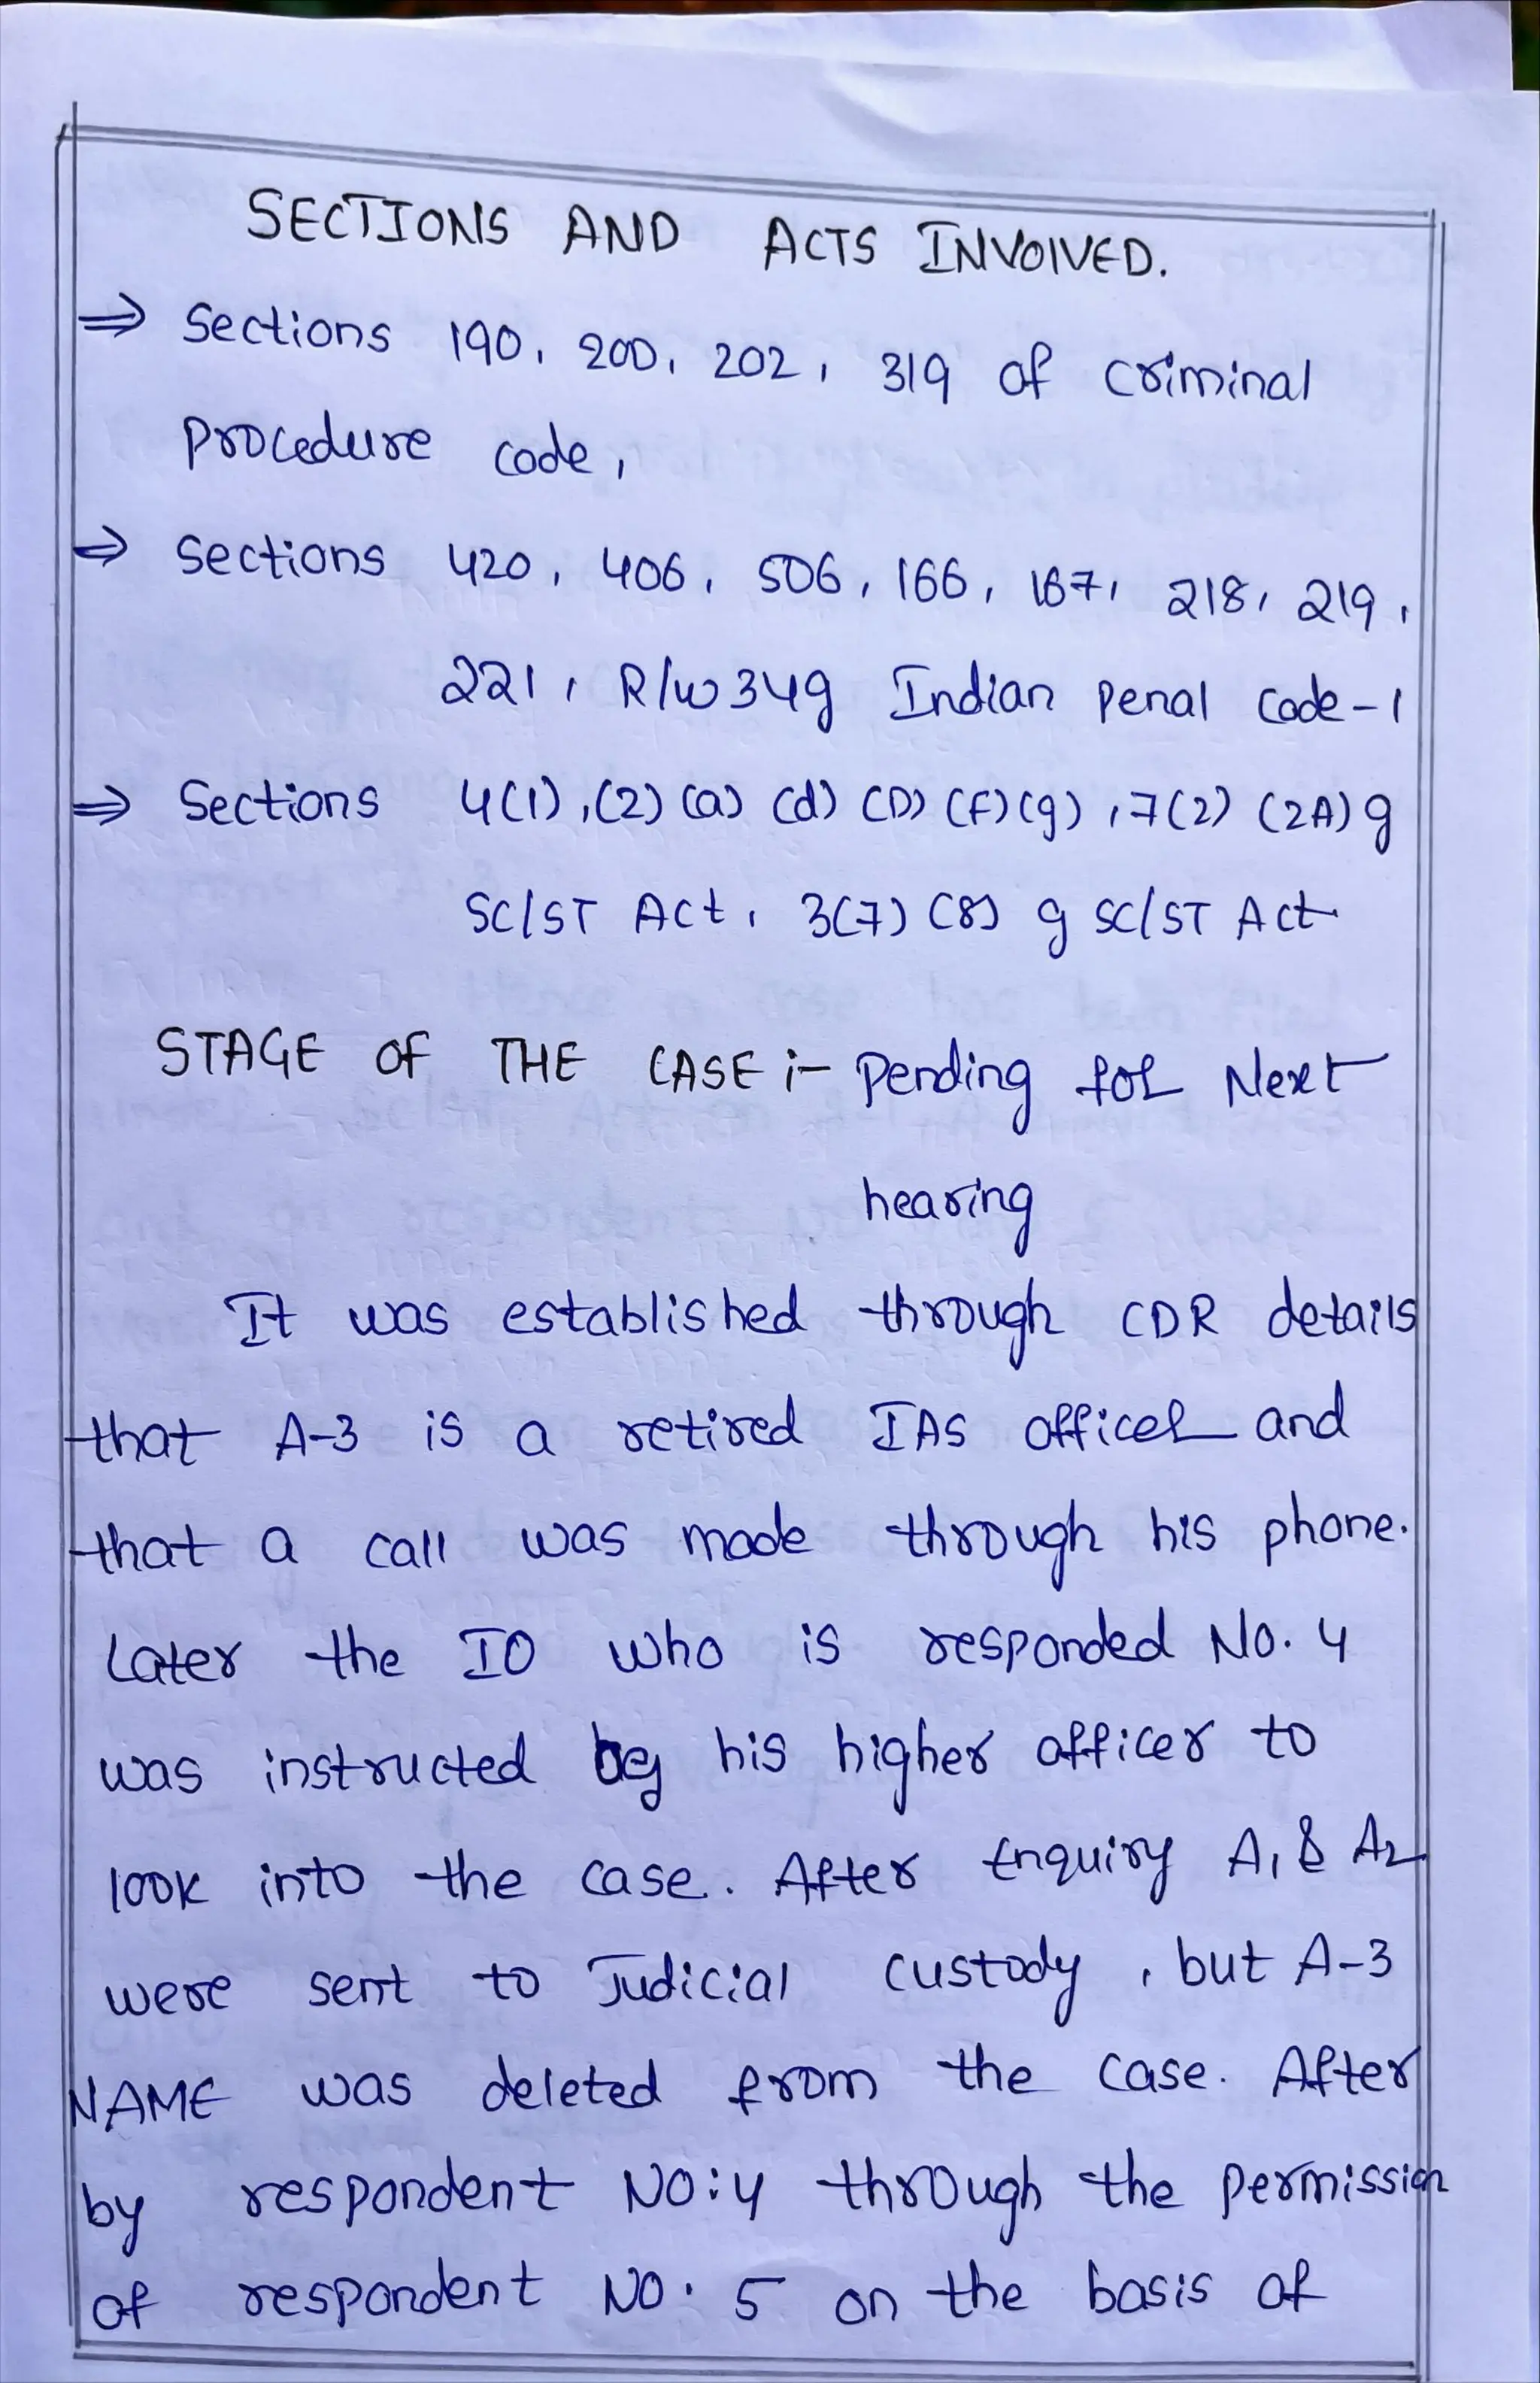 SECTIONS AND ACTS INVOIVED.
⇒ Sections 190, 200, 202, 319 of criminal
procedure code,
⇒ Sections 420, 406, 506, 166, 167, 218, 219,
221, R/w 34g Indian penal code-1
⇒ Sections 4(1),(2) (a) (d) (D) (f) (g), 7(2) (2A) g
SC/ST Act, 3(7) (8) g SC/ST Act
STAGE OF THE CASE :- pending for Next
hearing
It was established through CDR details
that A-3 is a retired IAS officer and
that a call was made through his phone.
Later the IO who is responded No. 4
was instructed by his higher officer to
look into the case. After Enquiry A1 & A2
were sent to Judicial custody, but A-3
NAME was deleted from the case. After
by respondent NO:4 through the permission
of respondent NO. 5 on the basis of